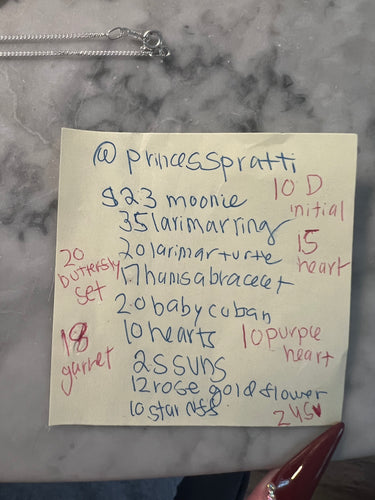 @princesspratti
$23 moonie
35 larimar ring
20 larimar turtle
17 hamsa bracelet
20 baby cuban
10 hearts
25 suns
12 rose gold flower
10 star nfs
10 D
initial
15
heart
10 purple
heart
20
butterfly
set
18
garnet